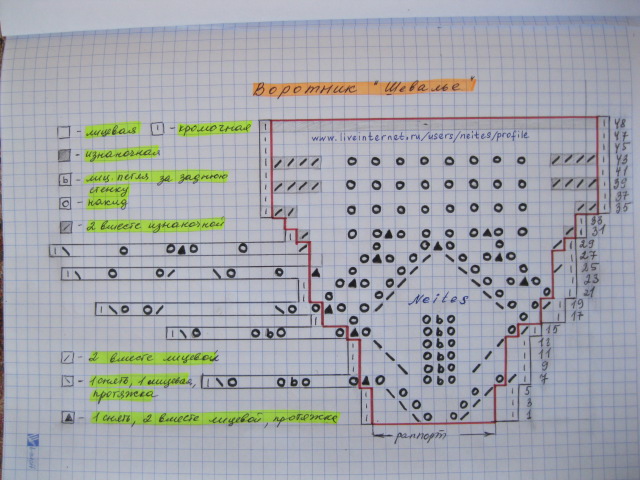 Воротник "Шевалье"
- лицевая
- кромочная
- изнаночная
- лиц. петля за заднюю
стенку
- накид
- 2 вместе изнаночной
www.liveinternet.ru/users/neites/profile
Neites
- 2 вместе лицевой
- 1 снять, 1 лицевая,
протяжка
- 1 снять, 2 вместе лицевой, протяжка
раппорт
48
47
45
43
41
39
37
35
33
31
29
27
25
23
21
19
17
15
13
11
9
7
5
3
1